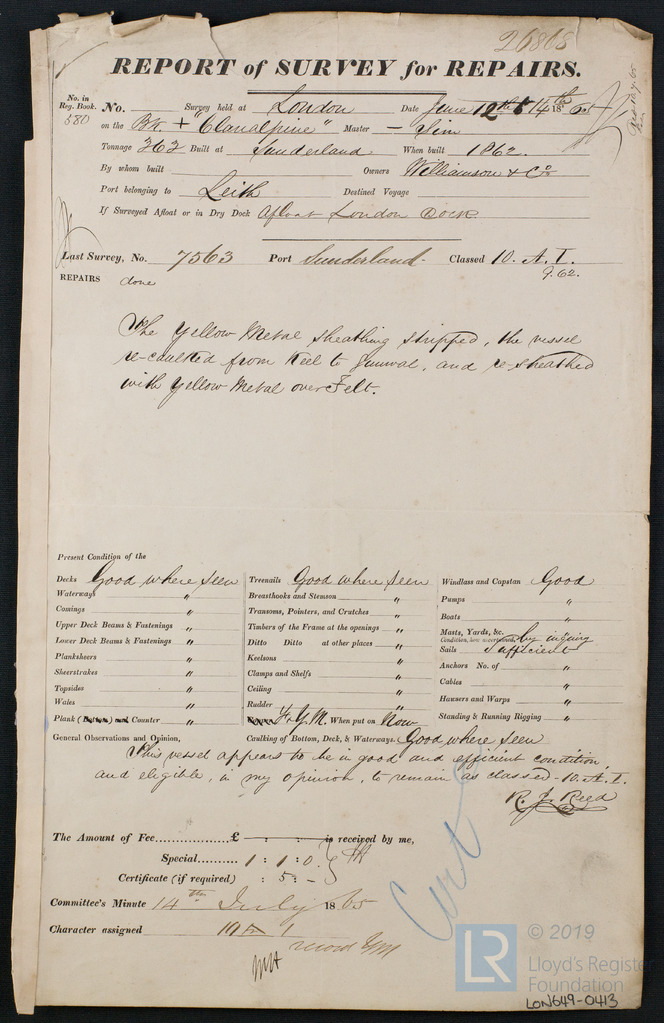 26868
REPORT of SURVEY for REPAIRS.
No. in Reg. Book.
580
No. Survey held at London Date June 12th & 14th 1865
on the Bk. + "Clanalpine" Master —
Tonnage 363 Built at Sunderland When built 1862.
By whom built Owners Williamson & Co
Port belonging to Leith Destined Voyage
If Surveyed Afloat or in Dry Dock Afloat London Dock
Last Survey, No. 7563 Port Sunderland. Classed 10. A. I.
9.62.
REPAIRS done
The Yellow Metal sheathing stripped, the vessel
re-caulked from Keel to gunwal, and re-sheathed
with Yellow Metal over Felt.
Present Condition of the
Decks Good where seen
Waterways "
Comings "
Upper Deck Beams & Fastenings "
Lower Deck Beams & Fastenings "
Planksheers "
Sheerstrakes "
Topsides "
Wales "
Plank (Bottom) and Counter "
Treenails Good where seen
Breasthooks and Stemson "
Transoms, Pointers, and Crutches "
Timbers of the Frame at the openings "
Ditto Ditto at other places "
Keelsons "
Clamps and Shelfs "
Ceiling "
Rudder "
F & Y.M. When put on Now
Windlass and Capstan Good
Pumps "
Boats "
Masts, Yards, &c. "
Condition, how ascertained, by inquiry
Sails Sufficient
Anchors No. of "
Cables "
Hausers and Warps "
Standing & Running Rigging "
General Observations and Opinion, Caulking of Bottom, Deck, & Waterways Good where seen
This vessel appears to be in good and efficient condition,
and eligible, in my opinion, to remain as classed - 10. A. I.
R. J. Reed
The Amount of Fee £ : : is received by me,
Special 1 : 1 : 0
Certificate (if required) : 5 : -
Cert
Committee's Minute 14th July 1865
Character assigned 10 A 1
record YM
© 2019
LR Lloyd's Register
Foundation
LON649-0413